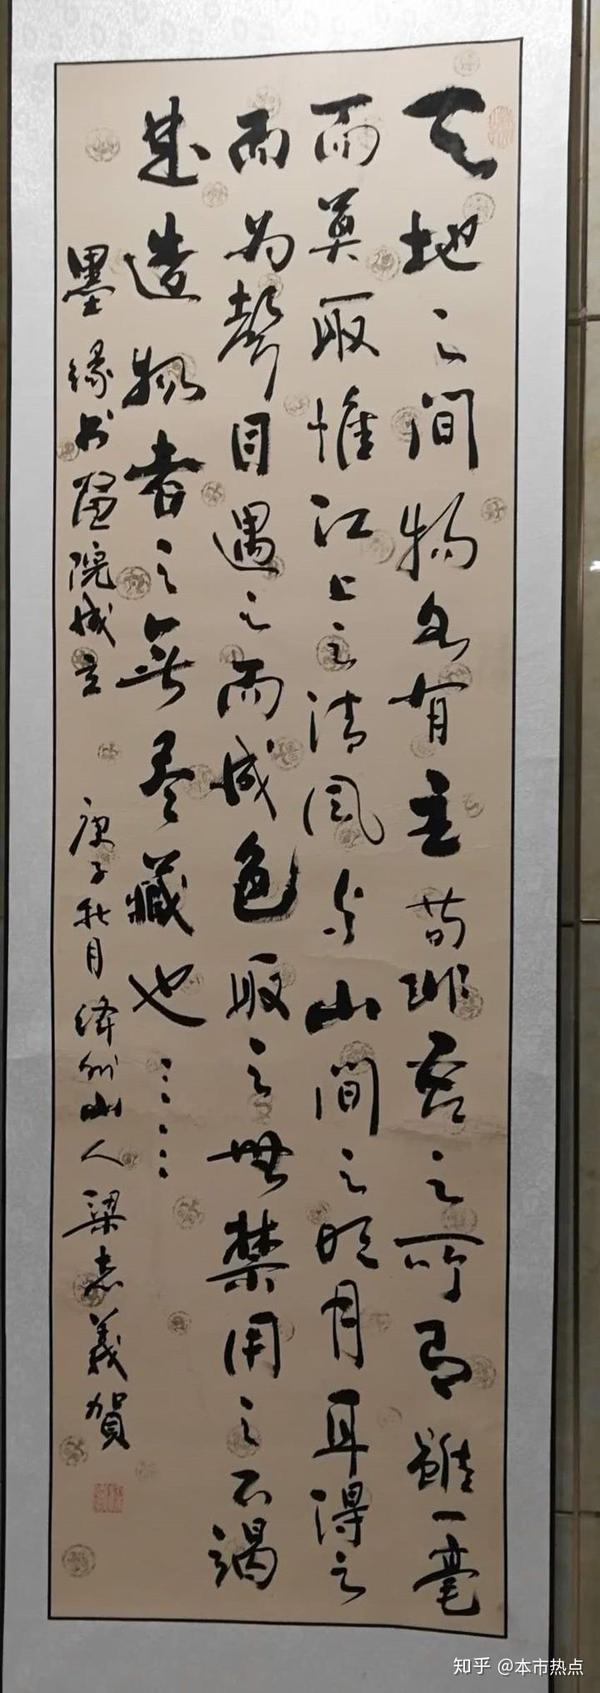 天地之間物各有主苟非吾之所有雖一毫
而莫取惟江上之清風与山間之明月耳得之
而为聲目遇之而成色取之無禁用之不竭
是造物者之無尽藏也……
墨缘书畫院成立 庚子秋月绛州山人梁志義賀
知乎 @本市热点